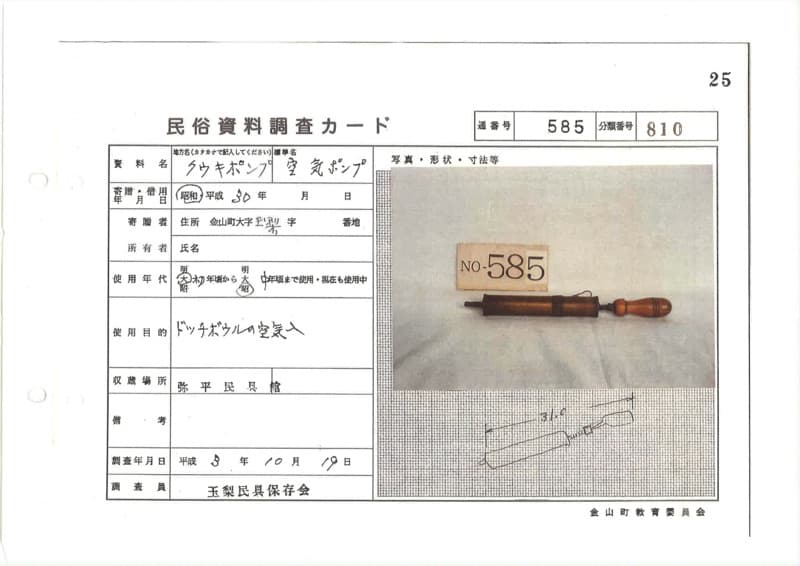 25
民俗資料調査カード
通番号 585 分類番号 810
資料名 地方名(カタカナで記入してください) クウキポンプ 標準名 空気ポンプ
写真・形状・寸法等
寄贈・借用年月日 昭和 平成 30年 月 日
寄贈者 住所 金山町大字 玉梨 字 番地
所有者 氏名
使用年代 明 大 昭 初年頃から 明 大 昭 中年頃まで使用・現在も使用中
使用目的 ドッチボウルの空気入
収蔵場所 弥平民具館
備考
調査年月日 平成 3年 10月 19日
調査員 玉梨民具保存会
NO-585
31.0
金山町教育委員会